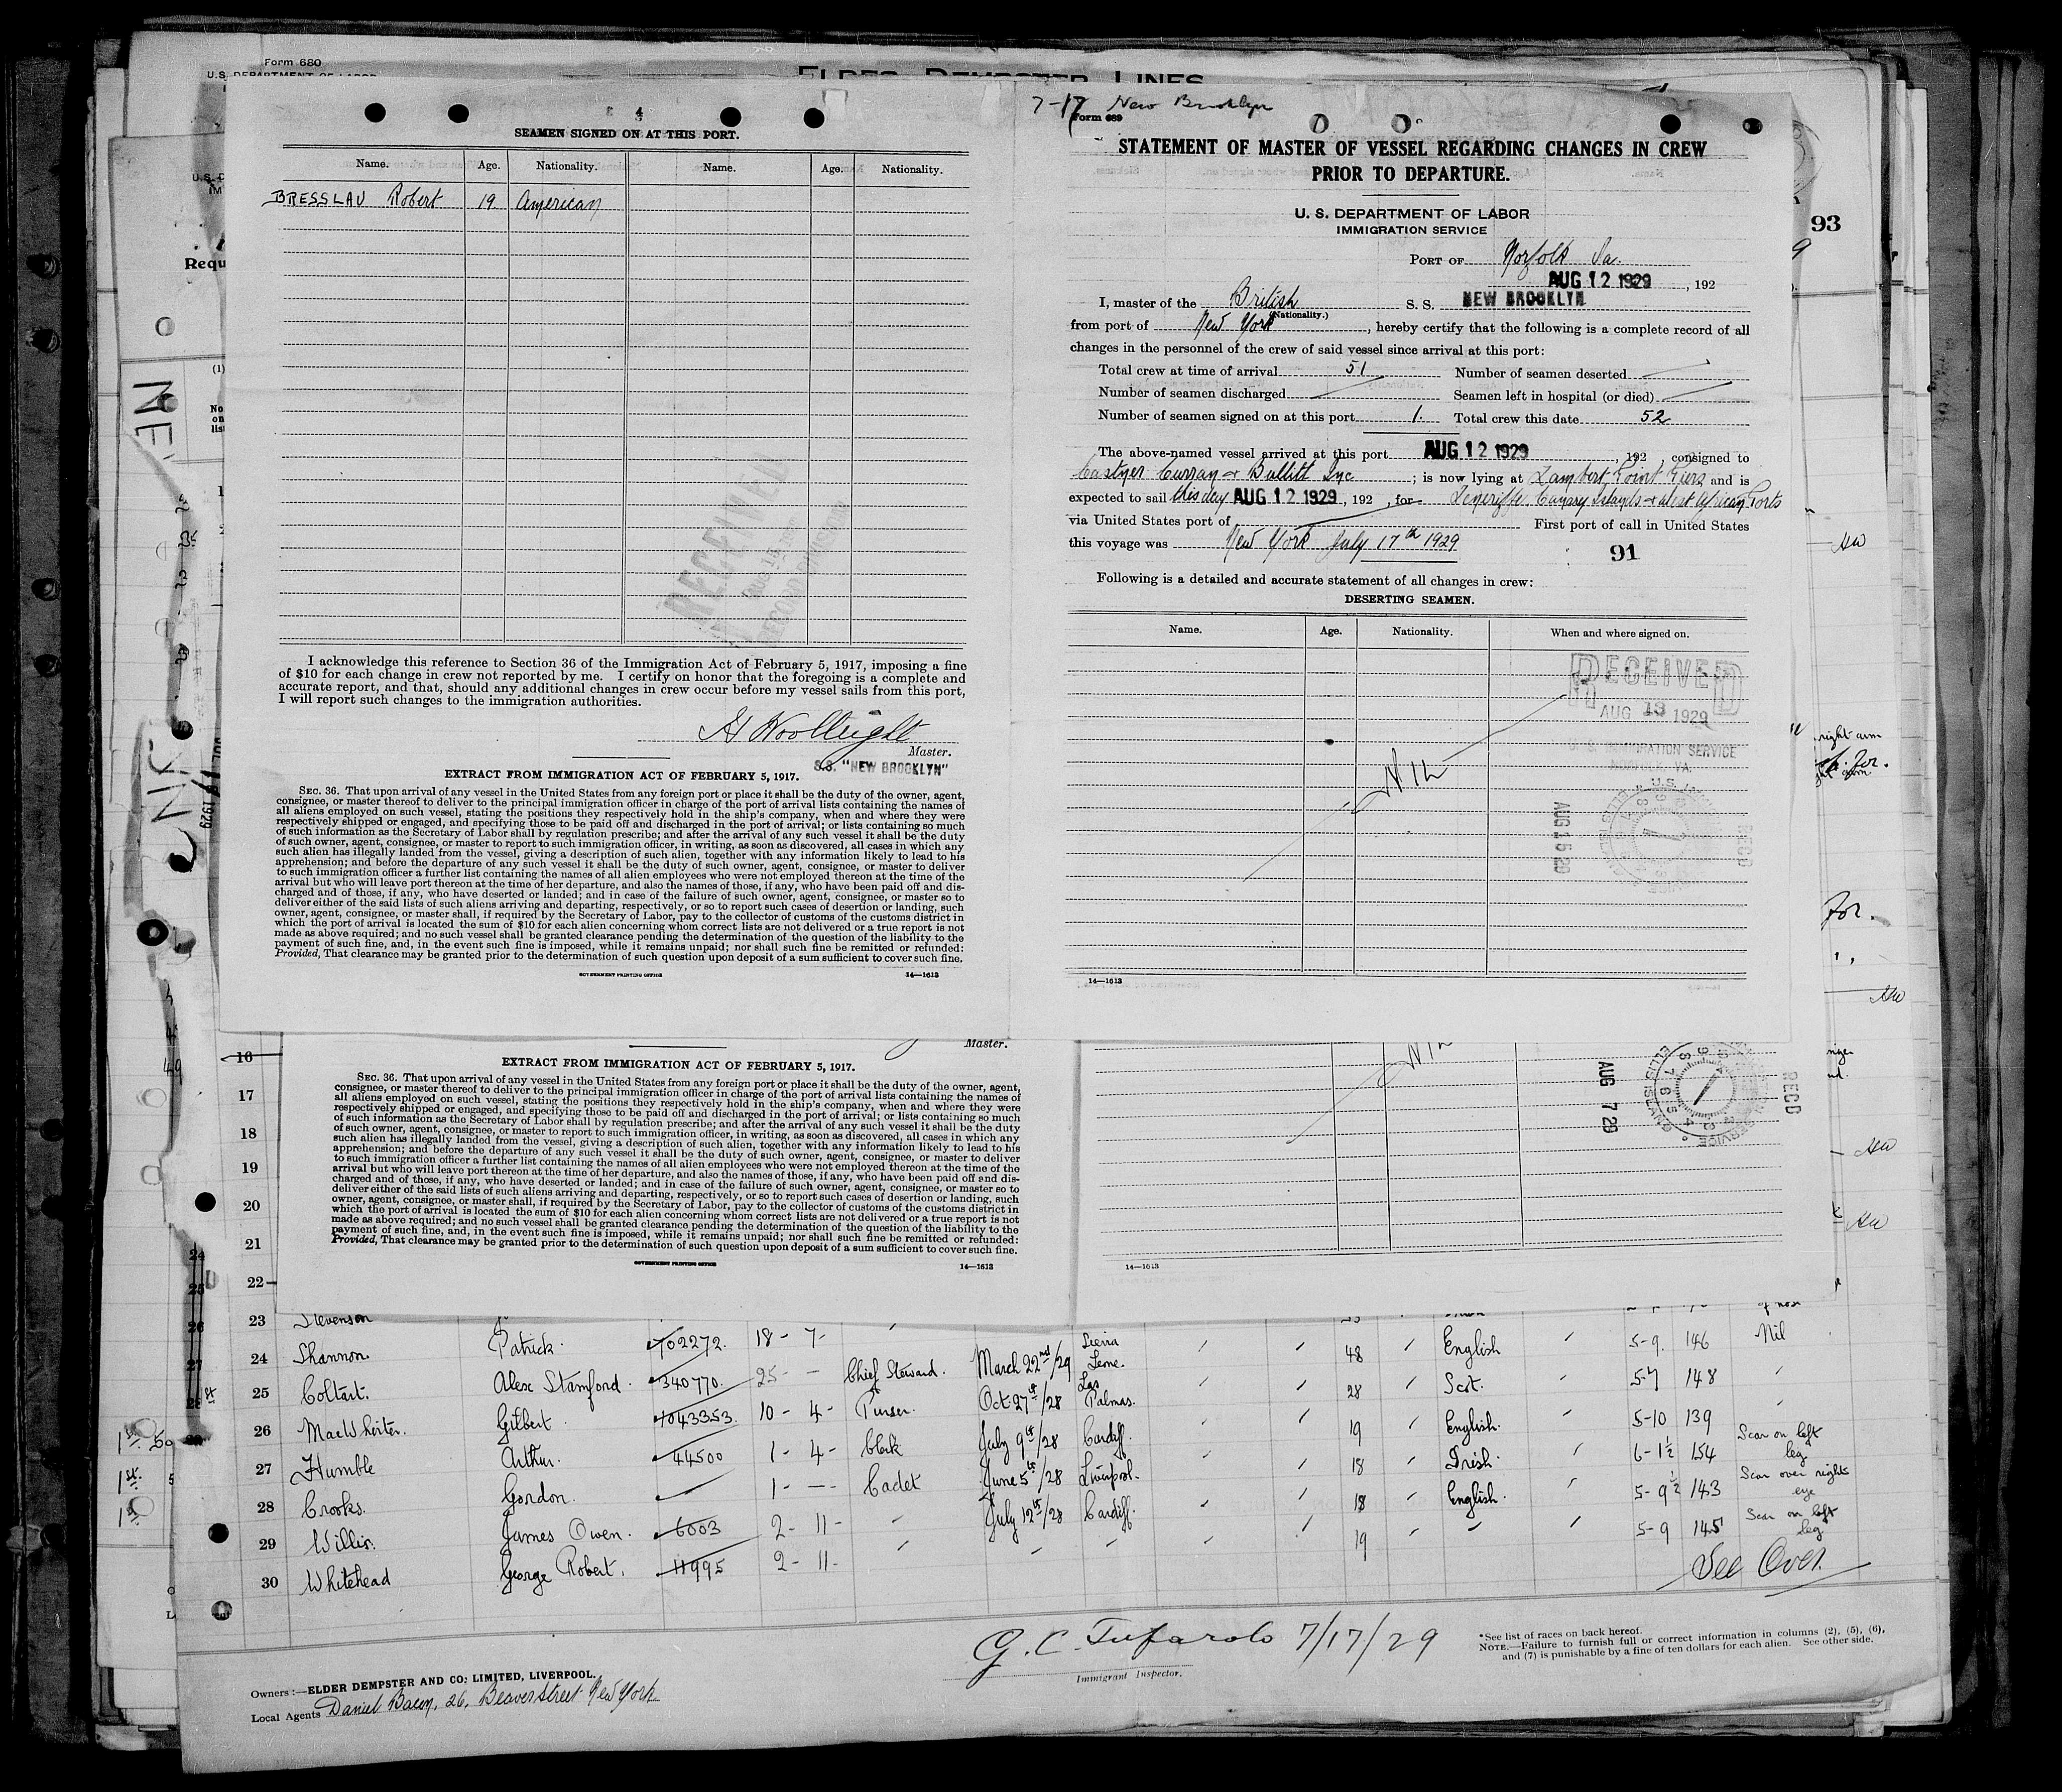 Form 680
U.S. DEPARTMENT OF LABOR
ELDER DEMPSTER LINES
7-17 New Brooklyn
SEAMEN SIGNED ON AT THIS PORT.
Name. Age. Nationality. Name. Age. Nationality.
BRESSLAU Robert 19 American
I acknowledge this reference to Section 36 of the Immigration Act of February 5, 1917, imposing a fine
of $10 for each change in crew not reported by me. I certify on honor that the foregoing is a complete and
accurate report, and that, should any additional changes in crew occur before my vessel sails from this port,
I will report such changes to the immigration authorities.
Master.
S.S. "NEW BROOKLYN"
EXTRACT FROM IMMIGRATION ACT OF FEBRUARY 5, 1917.
SEC. 36. That upon arrival of any vessel in the United States from any foreign port or place it shall be the duty of the owner, agent,
consignee, or master thereof to deliver to the principal immigration officer in charge of the port of arrival lists containing the names of
all aliens employed on such vessel, stating the positions they respectively hold in the ship's company, when and where they were
respectively shipped or engaged, and specifying those to be paid off and discharged in the port of arrival; or lists containing so much
of such information as the Secretary of Labor shall by regulation prescribe; and after the arrival of any such vessel it shall be the duty
of such owner, agent, consignee, or master to report to such immigration officer, in writing, as soon as discovered, all cases in which any
such alien has illegally landed from the vessel, giving a description of such alien, together with any information likely to lead to his
apprehension; and before the departure of any such vessel it shall be the duty of such owner, agent, consignee, or master to deliver
to such immigration officer a further list containing the names of all alien employees who were not employed thereon at the time of the
arrival but who will leave port thereon at the time of her departure, and also the names of those, if any, who have been paid off and dis-
charged and of those, if any, who have deserted or landed; and in case of the failure of such owner, agent, consignee, or master so to
deliver either of the said lists of such aliens arriving and departing, respectively, or so to report such cases of desertion or landing, such
owner, agent, consignee, or master shall, if required by the Secretary of Labor, pay to the collector of customs of the customs district in
which the port of arrival is located the sum of $10 for each alien concerning whom correct lists are not delivered or a true report is not
made as above required; and no such vessel shall be granted clearance pending the determination of the question of the liability to the
payment of such fine, and, in the event such fine is imposed, while it remains unpaid; nor shall such fine be remitted or refunded:
Provided, That clearance may be granted prior to the determination of such question upon deposit of a sum sufficient to cover such fine.
GOVERNMENT PRINTING OFFICE 14—1613
Form 689
STATEMENT OF MASTER OF VESSEL REGARDING CHANGES IN CREW
PRIOR TO DEPARTURE.
U. S. DEPARTMENT OF LABOR
IMMIGRATION SERVICE
PORT OF Norfolk Va.
AUG 12 1929, 192
I, master of the British S. S. NEW BROOKLYN
(Nationality.)
from port of New York, hereby certify that the following is a complete record of all
changes in the personnel of the crew of said vessel since arrival at this port:
Total crew at time of arrival 51 Number of seamen deserted
Number of seamen discharged Seamen left in hospital (or died)
Number of seamen signed on at this port 1. Total crew this date 52
The above-named vessel arrived at this port AUG 12 1929, 192 , consigned to
Castner Curran & Bullitt Inc ; is now lying at Lambert Point Piers and is
expected to sail this day AUG 12 1929, 192 , for Teneriffe Canary Islands & West African Ports
via United States port of First port of call in United States
this voyage was New York July 17th 1929
91
Following is a detailed and accurate statement of all changes in crew:
DESERTING SEAMEN.
Name. Age. Nationality. When and where signed on.
RECEIVED
AUG 13 1929
U. S. IMMIGRATION SERVICE
NORFOLK, VA.
Nil
AUG 15 29
RECD
14—1613
93
Master.
EXTRACT FROM IMMIGRATION ACT OF FEBRUARY 5, 1917.
SEC. 36. That upon arrival of any vessel in the United States from any foreign port or place it shall be the duty of the owner, agent,
consignee, or master thereof to deliver to the principal immigration officer in charge of the port of arrival lists containing the names of
all aliens employed on such vessel, stating the positions they respectively hold in the ship's company, when and where they were
respectively shipped or engaged, and specifying those to be paid off and discharged in the port of arrival; or lists containing so much
of such information as the Secretary of Labor shall by regulation prescribe; and after the arrival of any such vessel it shall be the duty
of such owner, agent, consignee, or master to report to such immigration officer, in writing, as soon as discovered, all cases in which any
such alien has illegally landed from the vessel, giving a description of such alien, together with any information likely to lead to his
apprehension; and before the departure of any such vessel it shall be the duty of such owner, agent, consignee, or master to deliver
to such immigration officer a further list containing the names of all alien employees who were not employed thereon at the time of the
arrival but who will leave port thereon at the time of her departure, and also the names of those, if any, who have been paid off and dis-
charged and of those, if any, who have deserted or landed; and in case of the failure of such owner, agent, consignee, or master so to
deliver either of the said lists of such aliens arriving and departing, respectively, or so to report such cases of desertion or landing, such
owner, agent, consignee, or master shall, if required by the Secretary of Labor, pay to the collector of customs of the customs district in
which the port of arrival is located the sum of $10 for each alien concerning whom correct lists are not delivered or a true report is not
made as above required; and no such vessel shall be granted clearance pending the determination of the question of the liability to the
payment of such fine, and, in the event such fine is imposed, while it remains unpaid; nor shall such fine be remitted or refunded:
Provided, That clearance may be granted prior to the determination of such question upon deposit of a sum sufficient to cover such fine.
GOVERNMENT PRINTING OFFICE 14—1613
Nil
AUG 7 29
ELLIS ISLAND
RECD
14—1613
16
17
18
19
20
21
22
23 Stevenson
24 Shannon Patrick. 702272. 18 - 7 - Sierra Leone. 48 English 5-9. 146 Nil
25 Coltart. Alex Stamford. 340770. 25 - Chief Steward. March 22nd/29 28 Scot. 5-7 148
26 MacWhirter. Gilbert. 1043353. 10 - 4 - Purser. Oct 27th/28 Las Palmas. 19 English. 5-10 139
27 Humble Arthur. 44500 1 - 4 - Clerk July 9th/28 Cardiff. 18 Irish. 6-1½ 154 Scar on left leg
28 Crooks. Gordon. 1 - Cadet June 5th/28 Liverpool. 18 English. 5-9½ 143 Scar over right eye
29 Willis. James Owen. 6003 2 - 11 - July 12th/28 Cardiff. 19 5-9 145 Scar on left leg
30 Whitehead George Robert. 11995 2 - 11 -
See Over.
G. C. Tufarolo 7/17/29
Immigrant Inspector.
*See list of races on back hereof.
NOTE.—Failure to furnish full or correct information in columns (2), (5), (6),
and (7) is punishable by a fine of ten dollars for each alien. See other side.
Owners:—ELDER DEMPSTER AND CO: LIMITED, LIVERPOOL.
Local Agents Daniel Bacon, 26, Beaver Street New York